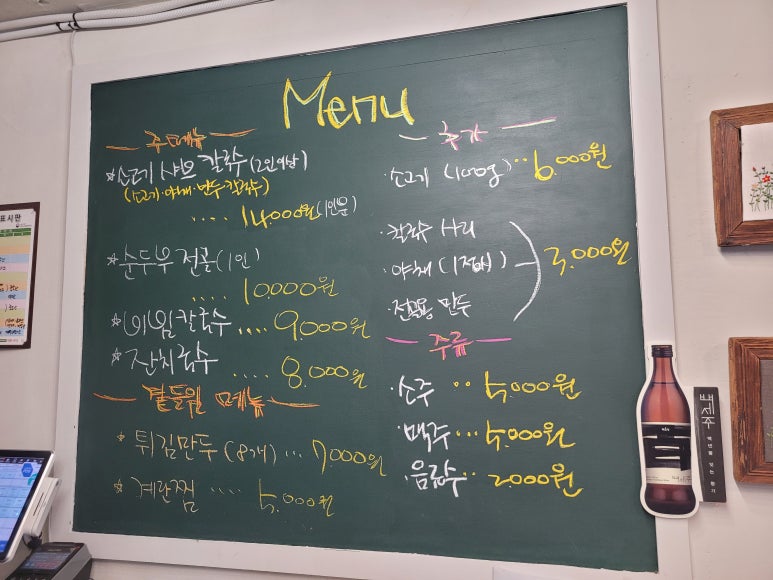 Menu
주메뉴
*소고기 샤브 칼국수 (2인이상)
(소고기·야채·만두·칼국수)
.... 14.000원 (1인분)
*순두부 전골 (1인)
..... 10.000원
*비빔칼국수 .... 9.000원
*잔치국수 .... 8.000원
곁들임 메뉴
* 튀김만두 (8개) ... 7.000원
* 계란찜 .... 5.000원
추가
·소고기 (100g) ·· 6.000원
·칼국수 사리
·야채 (1접시) 3.000원
·전골용 만두
주류
·소주 ·· 5.000원
·맥주 ··· 5.000원
·음료수 ·· 2.000원
표시판
백세주
백년을 잇는 향기